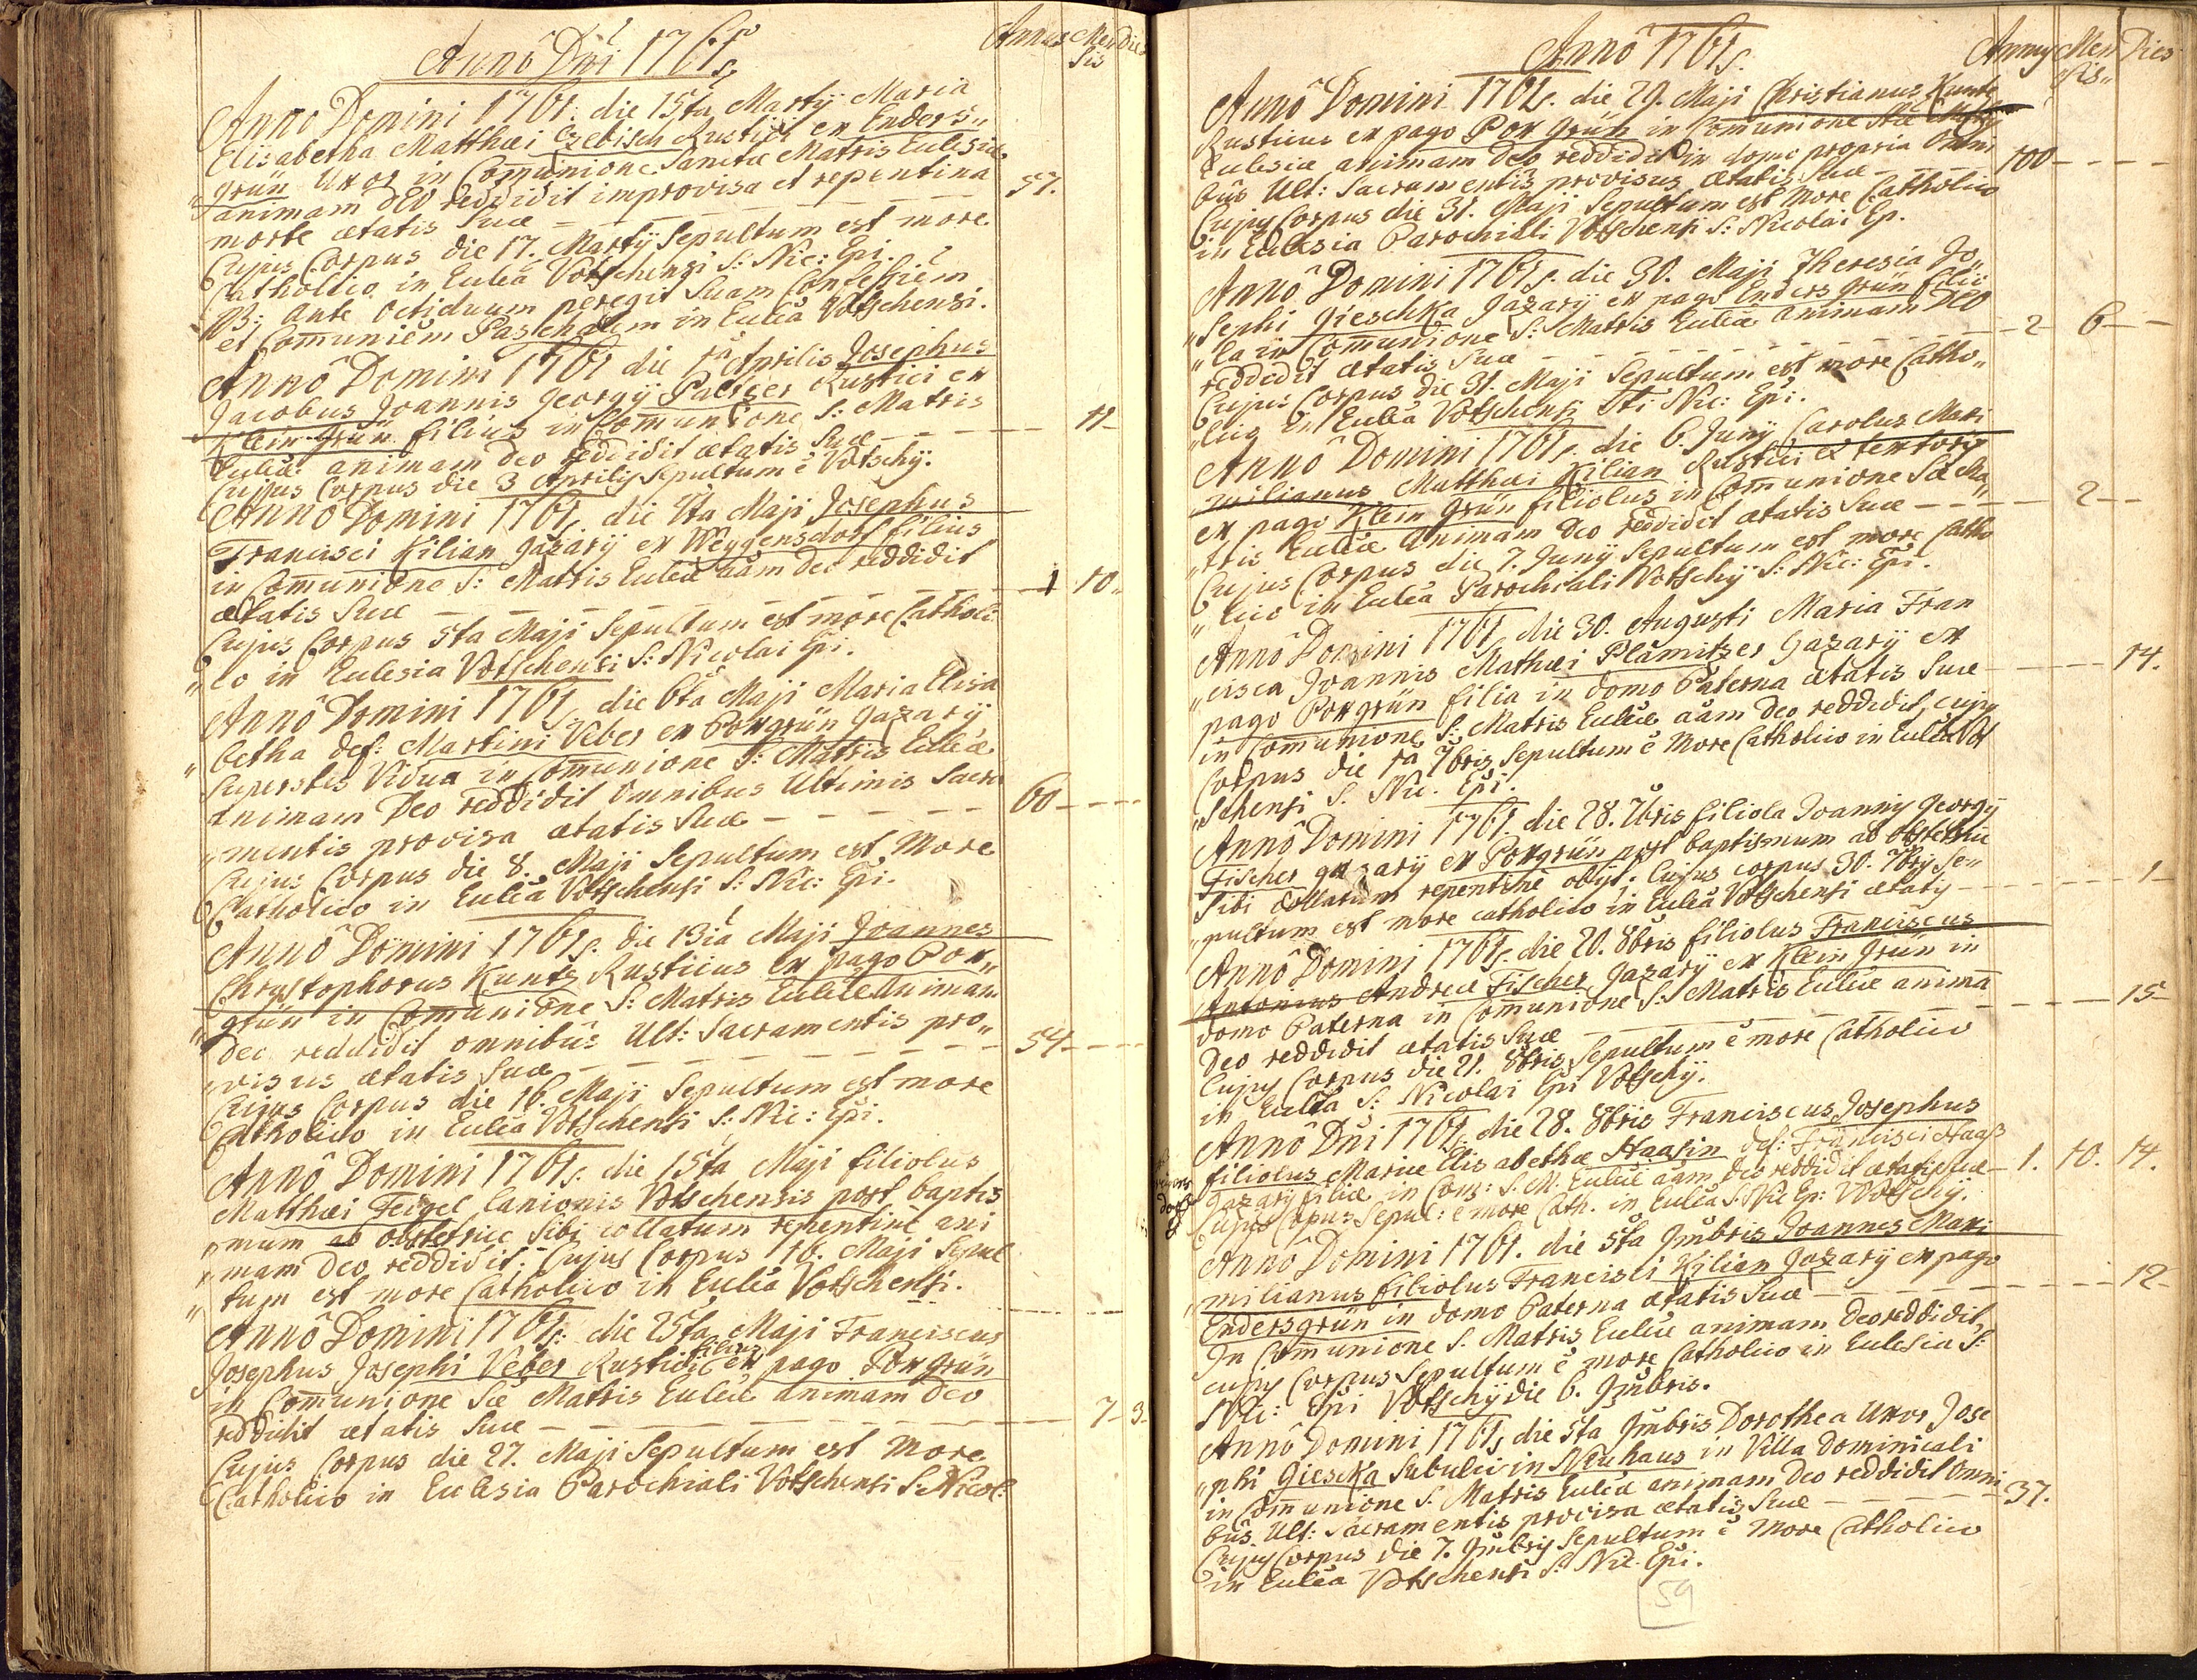 Annô Dni 1761.
Annus Mensis Dies
Anno Domini 1761. die 15ta Martÿ Maria
Elisabetha Matthæi Czebisch Rustici ex Enders„
„grün Uxor in Comunione Sanctæ Matris Eulesiæ
animam DEO reddidit improvisa et repentina
morte ætatis Suæ 57.
Cujus Corpus die 17. Martÿ Sepultum est more
Catholico in Eulea Votschensi S: Nic: Epi.
ante Octiduum peregit Suam Confessiem
et Comuniem Paschalem in Eulea Votschensi.
Annô Domini 1761 die 1a Aprilis Josephus
Jacobus Joannis Georgÿ Paltzer Rustici ex
Klein-Grün filius in Comunione S: Matris
Euleæ animam Deo reddidit ætatis Suæ 11
Cujus Corpus die 3 Aprilis Sepultum ê Votschÿ.
Annô Domini 1761. die Maji Josephus
Francisci Kilian Gazarÿ ex Weygensdorf filius
in Comunione S: Matris Euleæ aãm Deo reddidit
ætatis Suæ 1 10.
Cujus Corpus 5ta Maji Sepultum est more Catholi
„co in Eulesia Votschensi S: Nicolai Epi.
Annô Domini 1761. die 6ta Maji Maria Elisa
„betha def: Martini Veber ex Poxgrün Gazarÿ
Superstes Vidua in Comunione S: Matris Euleæ
animam Deo reddidit omnibus Ultimis Sacra
„mentis provisa ætatis Suæ 60
Cujus Corpus die 8. Maji Sepultum est More
Catholico in Eulea Votschensi S: Nic: Epi.
Annô Domini 1761. die 13ia Maji Joannes
Chrystophorus Kuntz Rusticus ex pago Pox„
„grün in Comunione S: Matris Euleæ Animam
Deo reddidit omnibûs Ult: Sacramentis pro„
„visus ætatis Suæ 54
Cujus Corpus die 16. Maji Sepultum est more
Catholico in Eulea Votschensi S: Nic: Epi.
Annô Domini 1761. die 15ta Maji filiolus
Matthæi Feigel Lanionis Votschensis post baptis
„mum ab obstetrice Sibi collatum repentine ani
„mam Deo reddidit. Cujus Corpus 16. Maji Sepul
„tum est more Catholico in Eulea Votschensi.
Annô Domini 1761. die 25ta Maji Franciscus
Josephus Josephi Veber Rustici filius ex pago Poxgrün
in Comunione Sæ Matris Euleæ animam Deo
reddidit ætatis Suæ 7 3
Cujus Corpus die 27. Maji Sepultum est More
Catholico in Eulesia Parochiali Votschensi S: Nicol:
Annô 1761.
Annus Mensis Dies
Annô Domini 1761. die 29. Maji Christianus Kuntz
Rusticus ex pago Pox grün in Comunione Sæ Matris
Eulesiæ animam Deo reddidit in domo propria Omni
bus Ult: Sacramentis provisus ætatis Suæ 100
Cujus Corpus die 31. Maji Sepultum est More Catholico
in Eulesia Parochiali Votschensi S: Nicolai Ep.
Annô Domini 1761. die 30. Maji Theresia Jo„
„sephi Gieschka Gazarÿ ex pago Enders grün filio
„la in Comunione S: Matris Euleæ animam Deo
reddidit ætatis Suæ 2 6
Cujus Corpus die 31. Maji Sepultum est more Catho„
„lico in Eulea Votschensi Sti Nic: Epi.
Annô Domini 1761. die 6. Junÿ Carolus Maxi
milianus Matthæi Kilian Rustici et textoris
ex pago Klein Grün filiolus in Comunione Sæ Ma„
„tris Euleæ animam Deo reddidit ætatis Suæ 2
Cujus Corpus die 7. Junÿ Sepultum est more Catho
„lico in Eulea Parochiali Votschÿ S: Nic: Epi.
Annô Domini 1761. die 30. Augusti Maria Fran
„cisca Joannis Mathæi Plamitzer Gazarÿ ex
pago Poxgrün filia in domo Paterna ætatis Suæ 14.
in Comunione S: Matris Euleæ aãm Deo reddidit, cujus
Corpus die 1a 7bris Sepultum ê More Catholico in Eulea Vot
„schensi S. Nic. Epi.
Annô Domini 1761. die 28. 7bris filiola Joannis Georgÿ
Fischer gazarÿ ex Poxgrün post baptismum ab obstetrice
Sibi collatum repentine obÿt. Cujus corpus 30. 7bris Se„
„pultum est more catholico in Eulea Votschensi ætatis 1
Annô Domini 1761. die 20. 8bris filiolus Franciscus
Antonius Andreæ Fischer Gazarÿ ex Klein Grün in
domo Paterna in Comunione S: Matris Euleæ animã
Deo reddidit ætatis Suæ 15
Cujus Corpus die 21. 8bris Sepultum ê more Catholico
in Eulea S: Nicolai Epi Votschÿ.
Annô Dñi 1761. die 28. 8bris Franciscus Josephus
filiolus Mariæ Elisabethæ Haasin def: Francisci Haas
Gazarÿ filiæ in Com: S. M. Euleæ aãm Deo reddidit ætatis Suæ 1. 10. 14.
Cujus Corpus Sepul: ê more Cath. in Eulea S. Nic Ep: Wotschÿ.
Annô Domini 1761. die 5ta 9mbris Joannes Maxi
„milianus filiolus Francisci Kilian Gazarÿ ex pago
Endersgrün in domo Paterna ætatis Suæ 12
In Comunione S. Matris Euleæ animam Deo reddidit,
cujus Corpus Sepultum ê more Catholico in Eulesia S:
Nic: Epi Votschÿ die 6. 9mbris.
Annô Domini 1761. die 5ta 9mbris Dorothea Uxor Jose
„phi Giescka Subulci in Neuhaus in Villa Dominicali
in Comunione S. Matris Euleæ animam Deo reddidit Omni
bus Ult: Sacramentis provisa ætatis Suæ 37.
Cujus Corpus die 7. 9mbris Sepultum ê More Catholico
in Eulea Votschensi S: Nic. Epi.
59